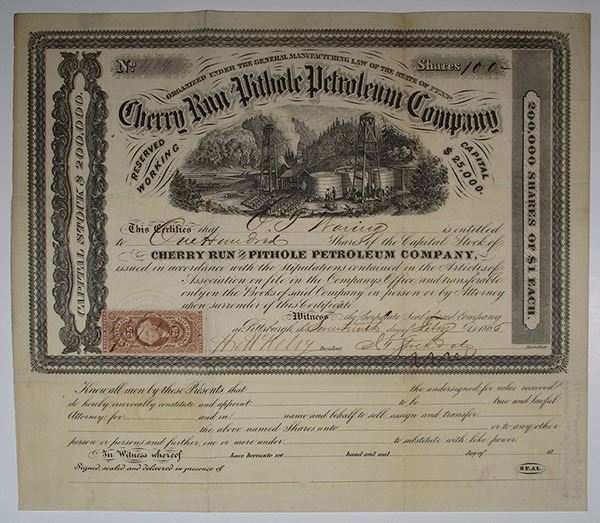 No.
Shares 100
ORGANIZED UNDER THE GENERAL MANUFACTURING LAW OF THE STATE OF PENN.
Cherry Run and Pithole Petroleum Company
RESERVED WORKING
CAPITAL $25,000.
CAPITAL STOCK $200,000.
200,000 SHARES OF $1 EACH.
This Certifies that Waring is entitled
to One Hundred Shares of the Capital Stock of
CHERRY RUN AND PITHOLE PETROLEUM COMPANY,
issued in accordance with the stipulations contained in the Articles of
Association on file in the Company's Office and transferable
only on the Books of said Company in person or by Attorney
upon surrender of this Certificate.
Witness the Corporate Seal of said Company
at Pittsburgh, this day of A.D. 1865
President
Secretary
Know all men by these Presents that the undersigned for value received
do hereby irrevocably constitute and appoint to be true and lawful
Attorney for and in name and behalf to sell, assign and transfer
the above named Shares unto or to any other
person or persons and further, one or more under to substitute with like power.
In Witness whereof have hereunto set hand and seal day of 18
Signed sealed and delivered in presence of
SEAL.